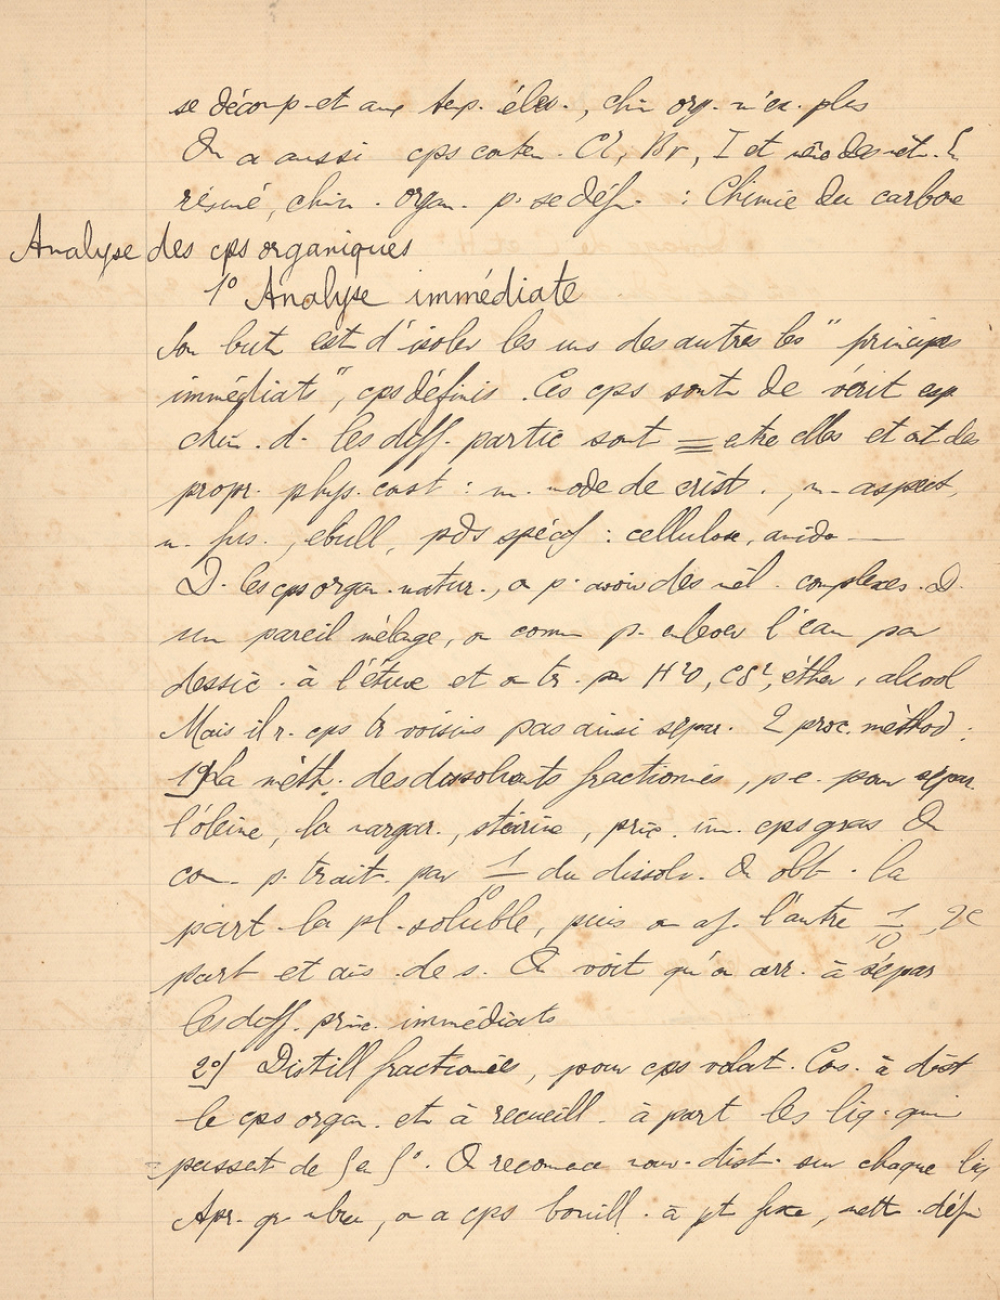 se décomp. et aux temp. élev., chim. org. n'ex. plus
On a aussi cps conten. Cl, Br, I et même des mét. En
résumé, chim. organ. p. se déf. : Chimie du carbone
Analyse des cps organiques
1° Analyse immédiate
Son but est d'isoler les uns des autres les " principes
immédiats ", cps définis. Ces cps sont de vérit esp
chim. d. les diff. partic sont = entre elles et ont des
propr. phys. const : m. mode de crist., m. aspect,
m. fus., ebull, pds spécif : cellulose, amidon —
D. les cps organ. natur., on p. avoir des mél. complexes. D.
un pareil mélange, on comm p. enlever l'eau par
dessic. à l'étuve et on tr. par H²O, CS², éther, alcool
Mais il r. cps tr voisins pas ainsi separ. 2 proc. méthod :
1°/ La méth. des dissolvants fractionnés, p.e. pour sépar.
l'oléine, la margar., stéarine, princ. im. cps gras On
com. p. trait. par 1/10 du dissolv. On obt. la
part. la pl. soluble, puis on aj. l'autre 1/10, 2e
part et ains. de s. On voit qu'on arr. à sépar
les diff. princ. immédiats
2°/ Distill fractionnées, pour cps volat. Cons. à dist
le cps organ. et à recueill. à part les liq. qui
passent de 5 en 5°. On recommence nouv. dist. sur chaque liq
Apr. gr. nbre, on a cps bouill. à pt fixe, nett. défin